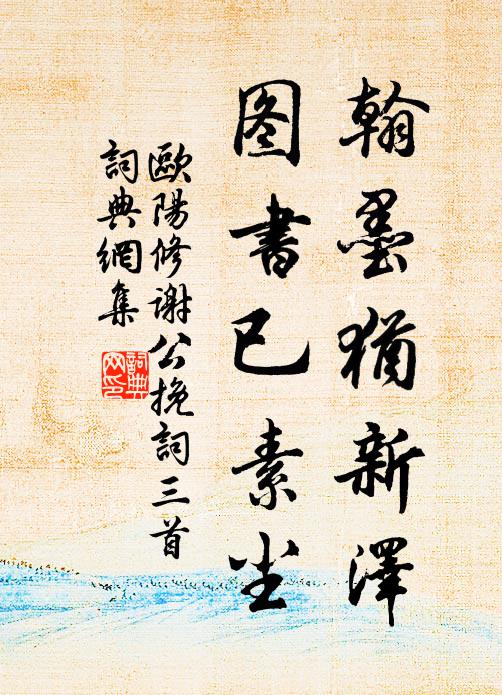 翰墨猶新澤
图書已素尘
歐陽修谢公挽詞三首
詞典網集
詞典网印